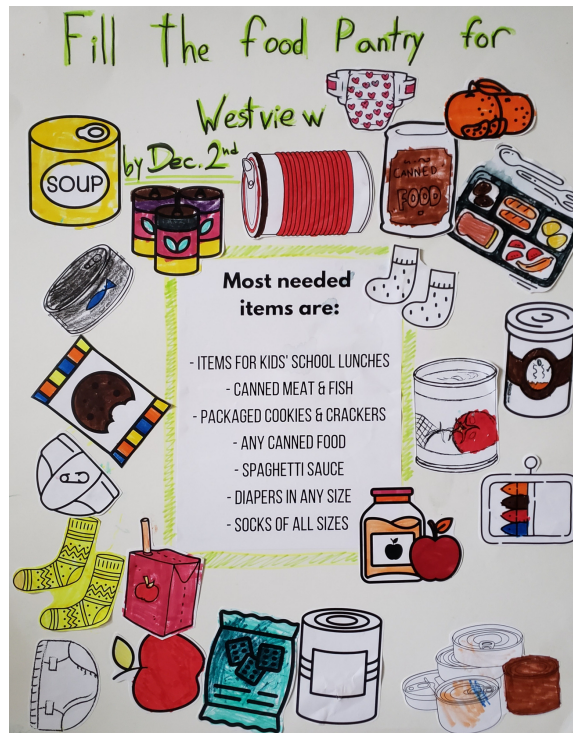 Fill the food Pantry for
Westview
by Dec. 2nd
SOUP
CANNED
FOOD
Most needed
items are:
- ITEMS FOR KIDS' SCHOOL LUNCHES
- CANNED MEAT & FISH
- PACKAGED COOKIES & CRACKERS
- ANY CANNED FOOD
- SPAGHETTI SAUCE
- DIAPERS IN ANY SIZE
- SOCKS OF ALL SIZES